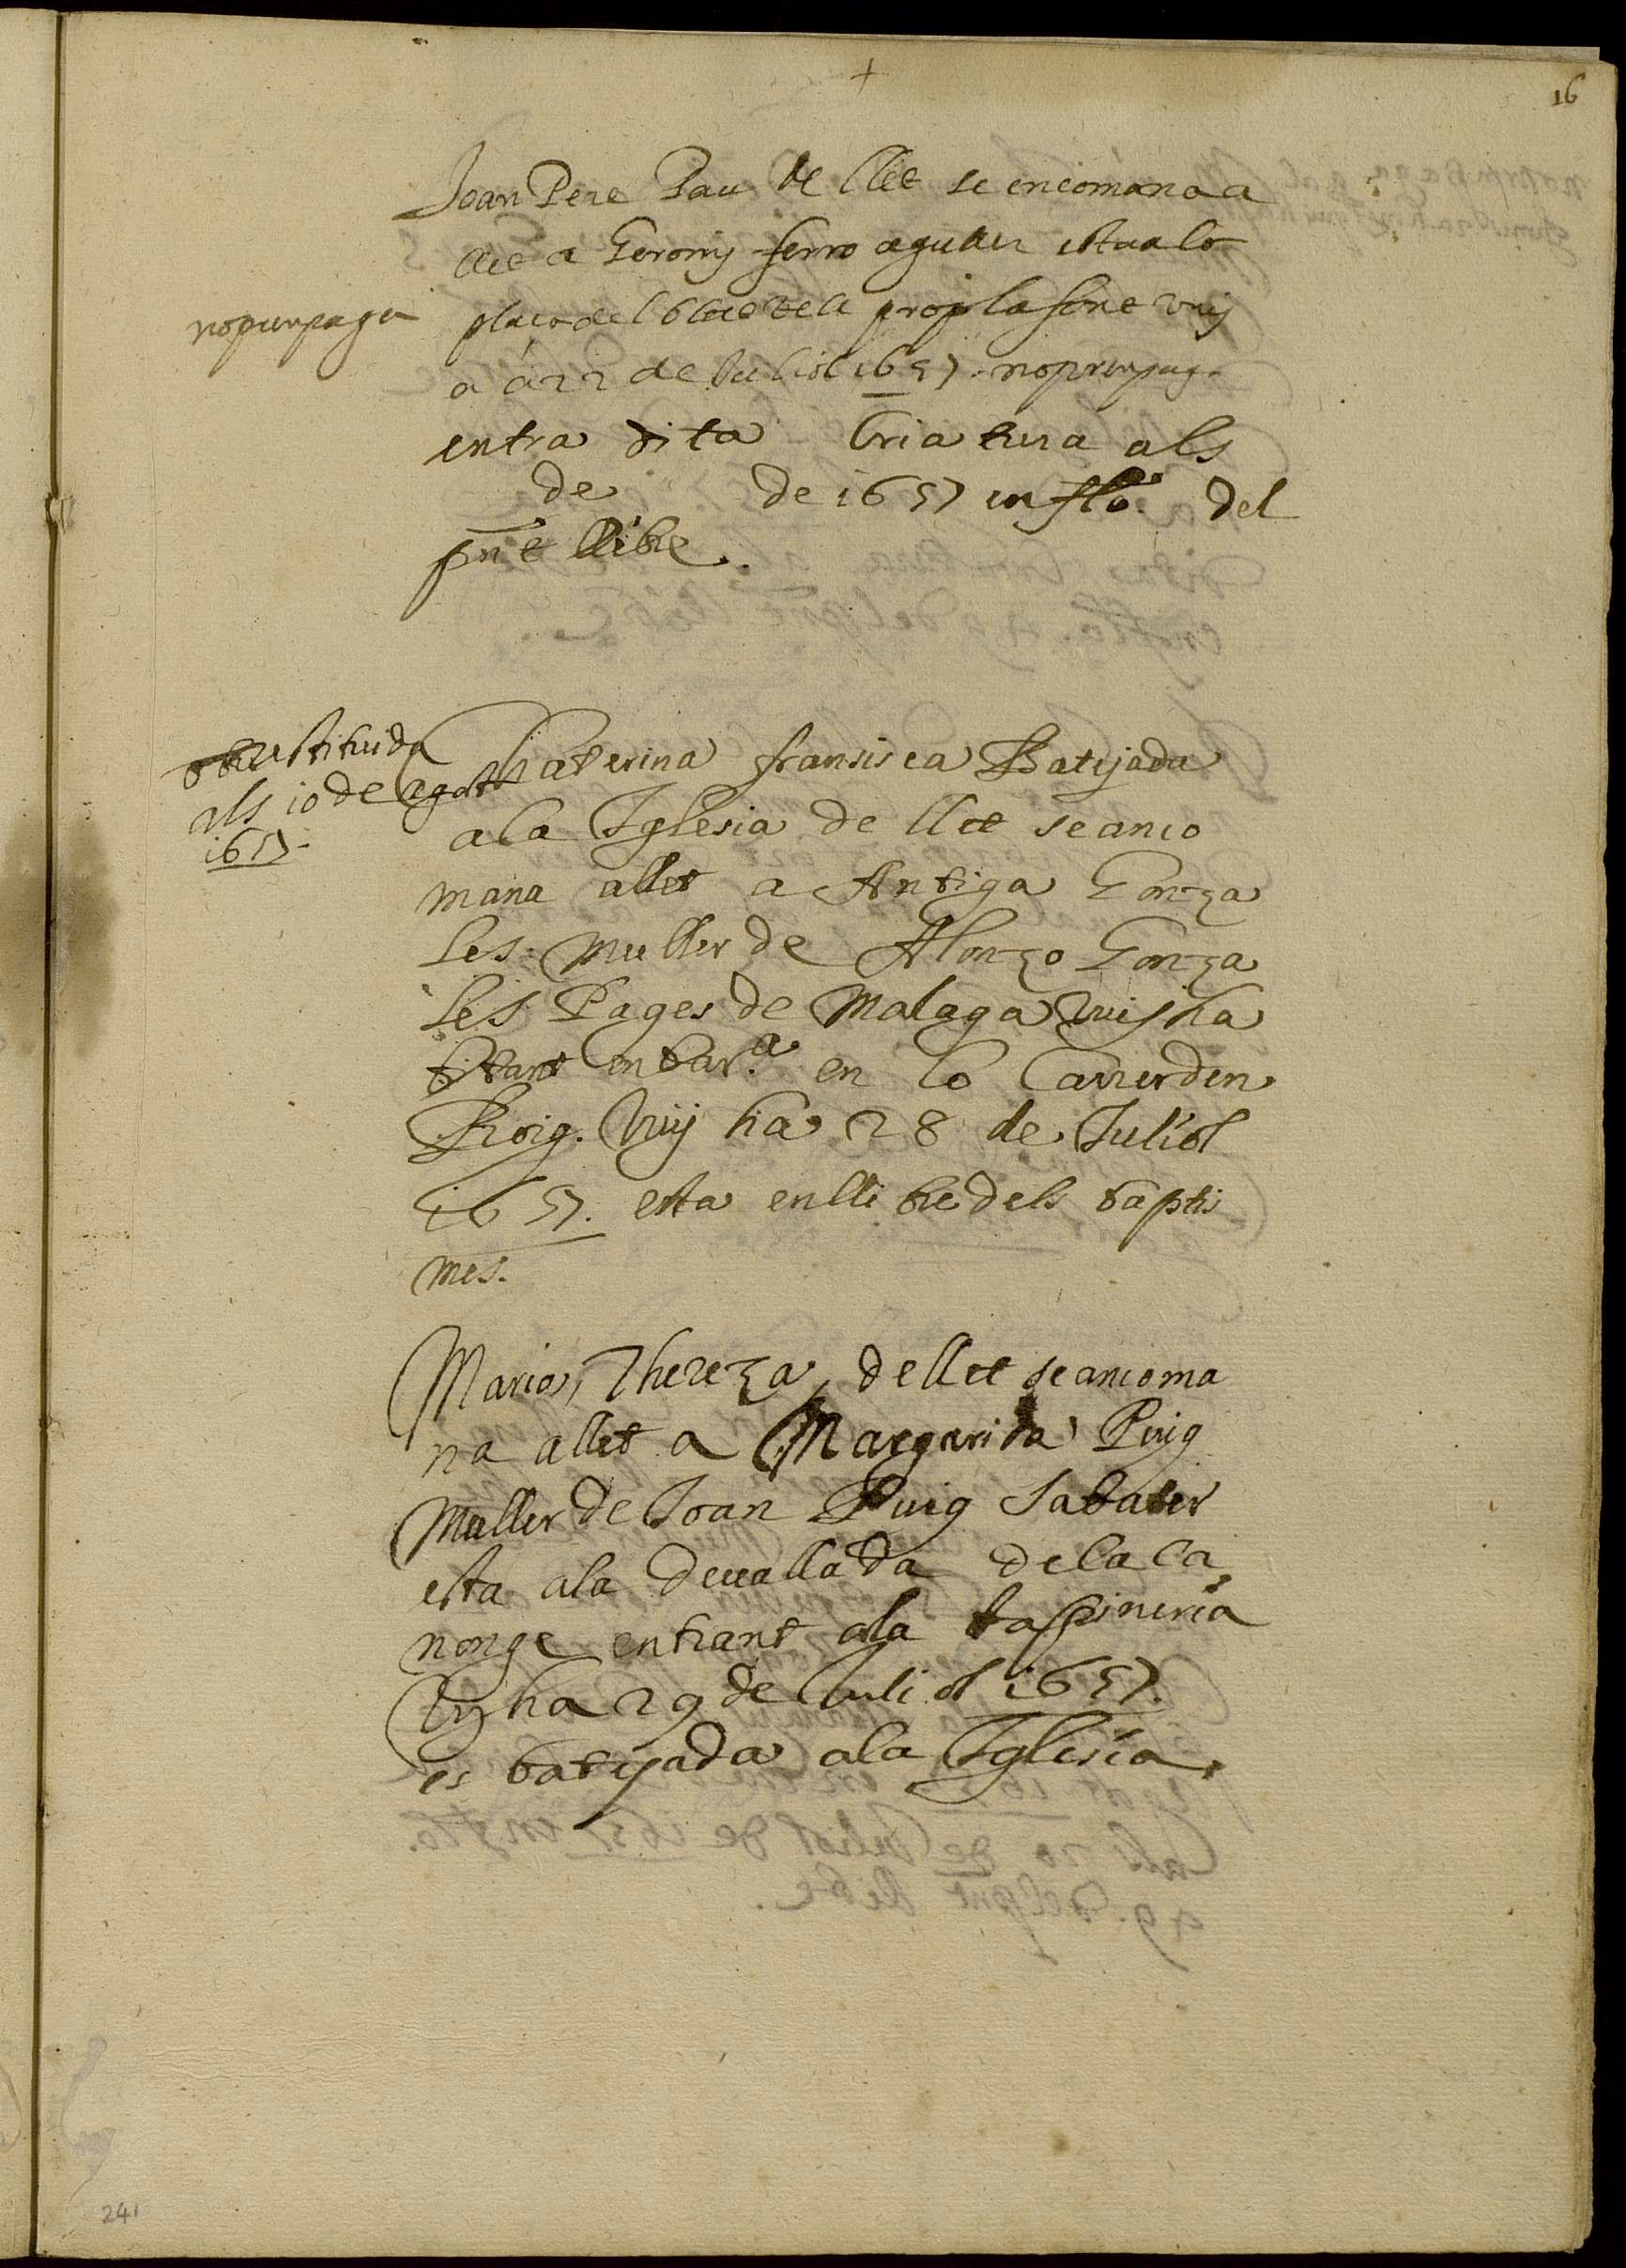 +
16
Joan Pere Pau de llet se encomana a
llet a Gerony ferro aguller esta a la
plaça del blat vella prop la font vuy
a â 22 de Juliol 1657. no pren paga
no pren paga
entra dita Criatura als
de de 1657 en flo. del
pnt llibre.
restituida
als 10 de Agost
1657
Chaterina fransisca Batejada
a la Iglesia de llet se anco
mana allet a Antiga Gonza
les muller de Alonzo Gonza
les Pages de Malaga vuy ha
bitant en bar.a en lo Carrer den
Roig. Vuy ha 28 de Juliol
1657. esta en lli bre dels baptis
mes.
Maria, Thereza, de llet se ancoma
na allet a Margarida Puig
Muller de Joan Puig Sabater
esta ala devallada de la Ca
nonge entrant ala tapineria
Vy ha 29 de Juliol 1657.
es batejada ala Iglesia.
241